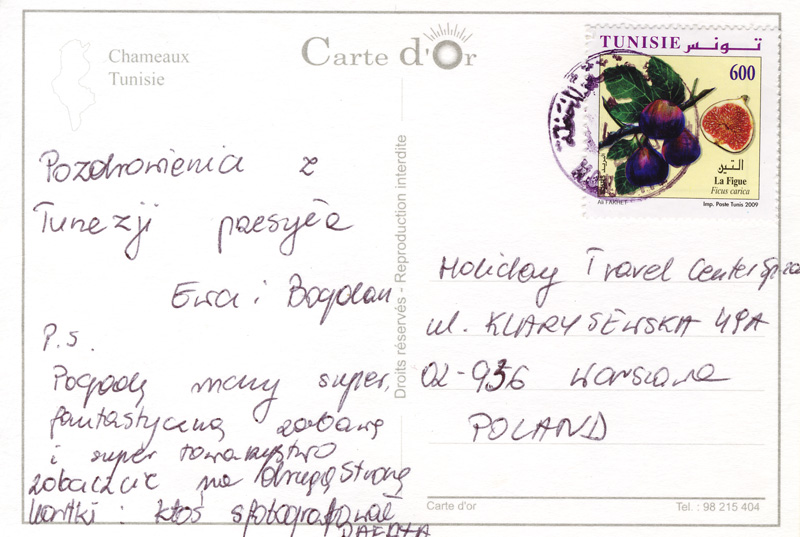 Chameaux
Tunisie
Carte d'Or
TUNISIE تونس
600
التين
La Figue
Ficus carica
Ali FAKHET
Imp. Poste Tunis 2009
Pozdrowienia z
Tunezji przesyła
Ewa i Bogdan
P.S.
Pogodę mamy super,
fantastyczną zabawę
i super towarzystwo
zobaczcie na drugą stronę
kartki: ktoś sfotografował
Droits réservés - Reproduction interdite
Holiday Travel Center Sp. zoo
ul. KLARYSEWSKA 49A
02-936 Warszawa
POLAND
Carte d'or
Tel. : 98 215 404